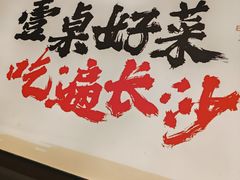 壹桌好菜
吃遍长沙